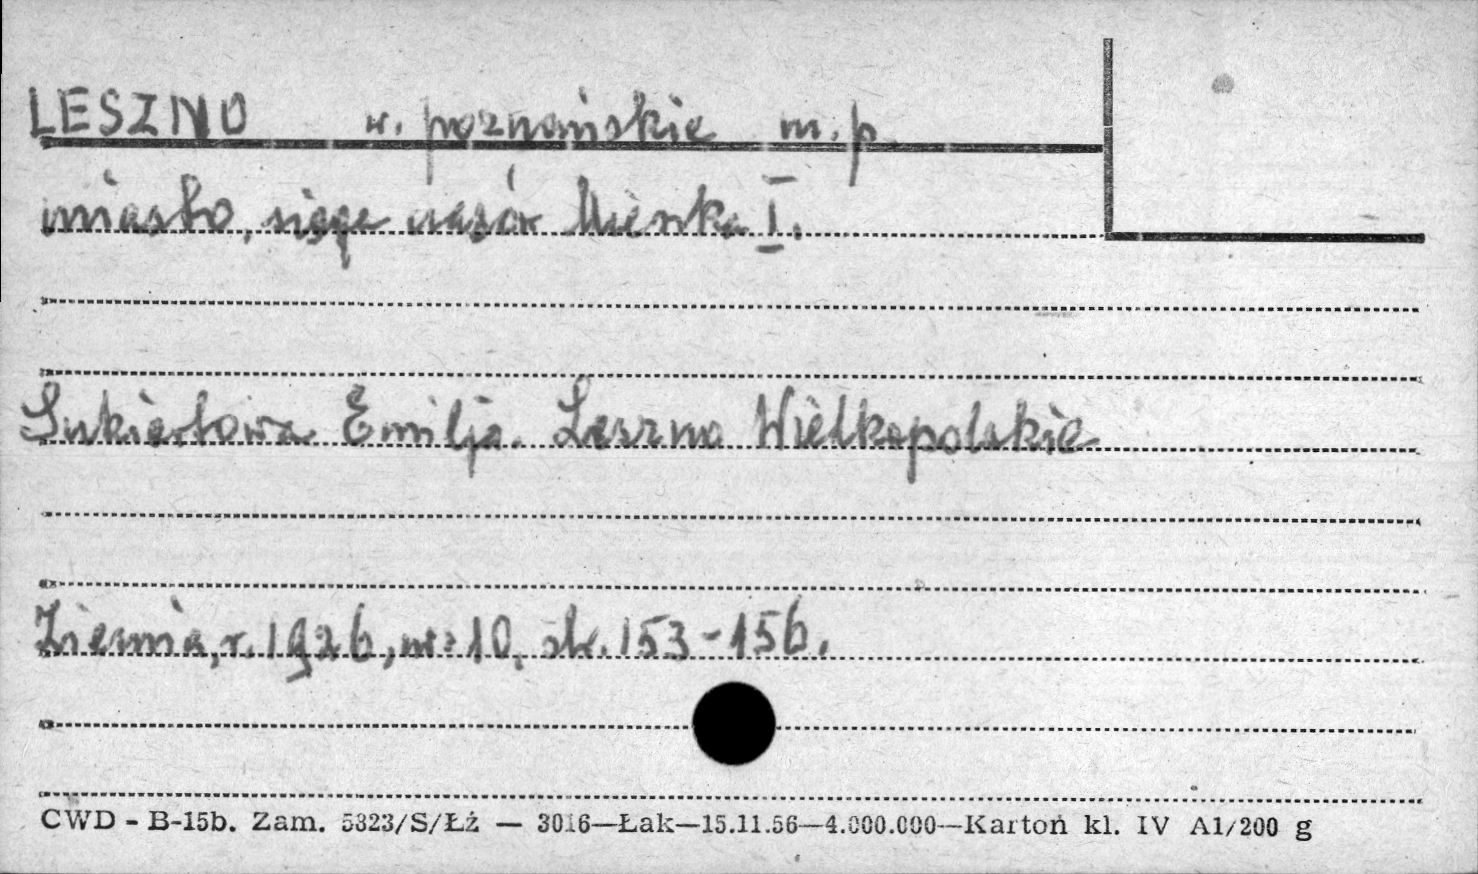 LESZNO w. poznańskie m. p.
miasto, sięga czasów Mieszka I.
Sukiertowa Emilja. Leszno Wielkopolskie
Ziemia, r. 1926, nr: 10, str. 153-156.
CWD - B-15b. Zam. 5323/S/Łż — 3016—Łak—15.11.56—4.000.000—Kartoń kl. IV A1/200 g